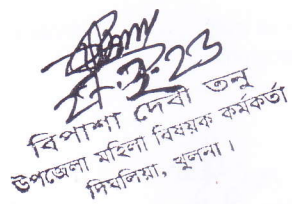 ২৮.৩.২৩
বিপাশা দেবী তনু
উপজেলা মহিলা বিষয়ক কর্মকর্তা
দিঘলিয়া, খুলনা।